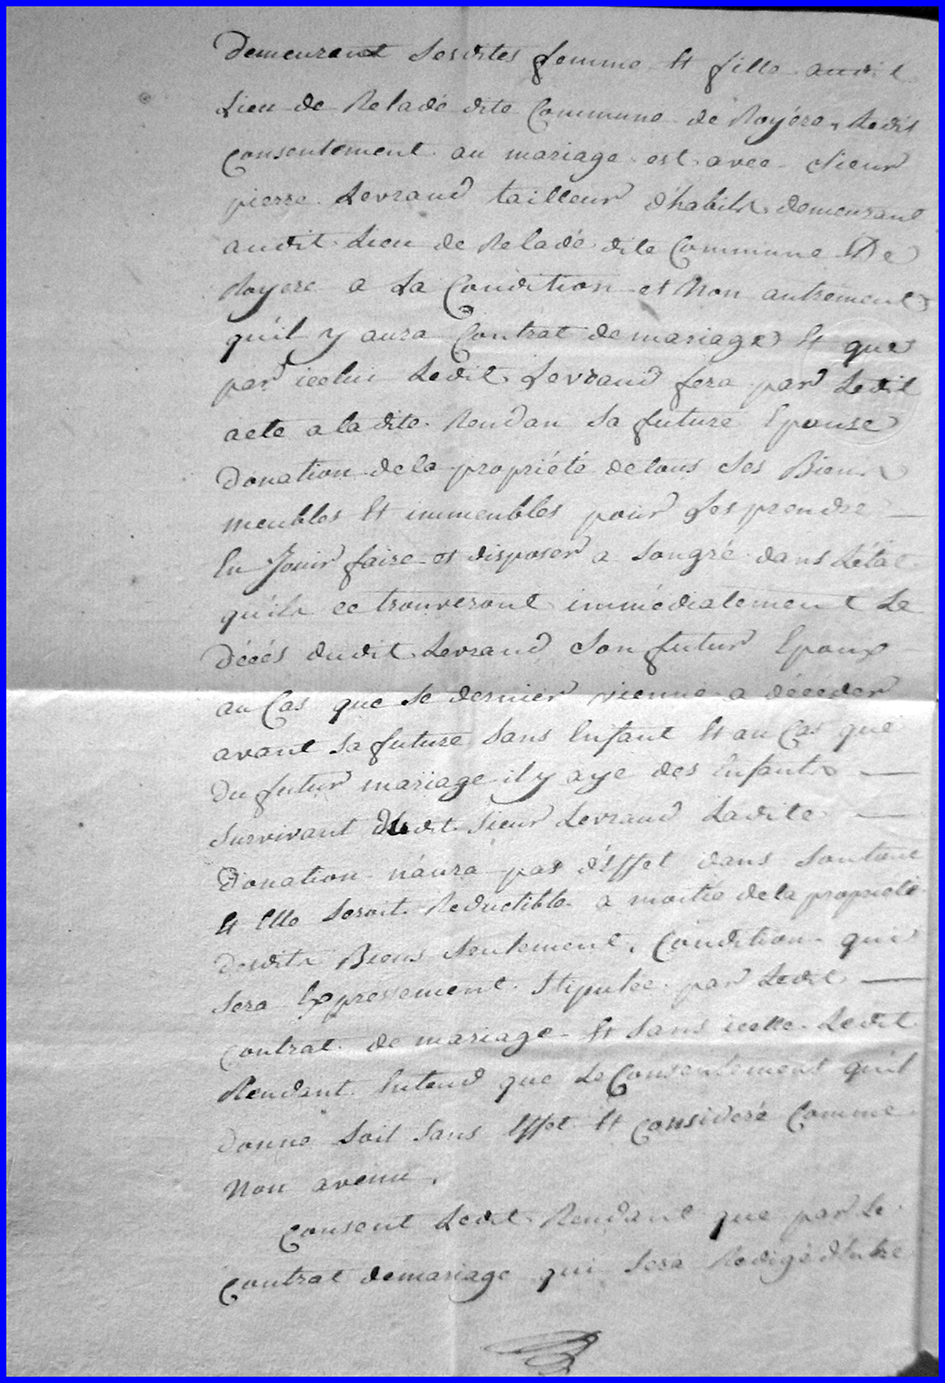 Demeurant Sesdites femme Et fille audit
Lieu de Reladé dite Commune de Royére, Ledit
Consentement au mariage est avec Sieur
pierre Levraud tailleur d'habits demeurant
audit Lieu de Reladé dite Commune De
Royere a La Condition et Non autrement
qu'il y aura Contrat de mariage Et que
par icelui Ledit Levraud fera par Ledit
acte a ladite Rendan Sa future Epouse
Donation de la propriété de tous Ses Biens
meubles Et immeubles pour Les prendre
En Jouir faire et disposer a Songré dans L'état
qu'ils ce trouveront immédiatement Le
Décés dudit Levraud Son futur Epoux
au Cas que Se dernier vienne a décéder
avant Sa future Sans Enfant Et au Cas que
Du futur mariage il y aye des Enfants
Survivant Dudit Sieur Levraud Ladite
Donation n'aura pas d'Effet dans Son tout
Et Elle Seroit Reductible a moitié de la propriété
desdits Biens Seulement, Condition qui
Sera Expressement Stipulée par Ledit
Contrat de mariage Et Sans icelle Ledit
Rendant Entend que Le Consentement qu'il
donne Soit Sans Effet Et Consideré Comme
Non avenu.
Consent Ledit Rendant que par Le
Contrat de mariage qui Sera Redigé d'Entre